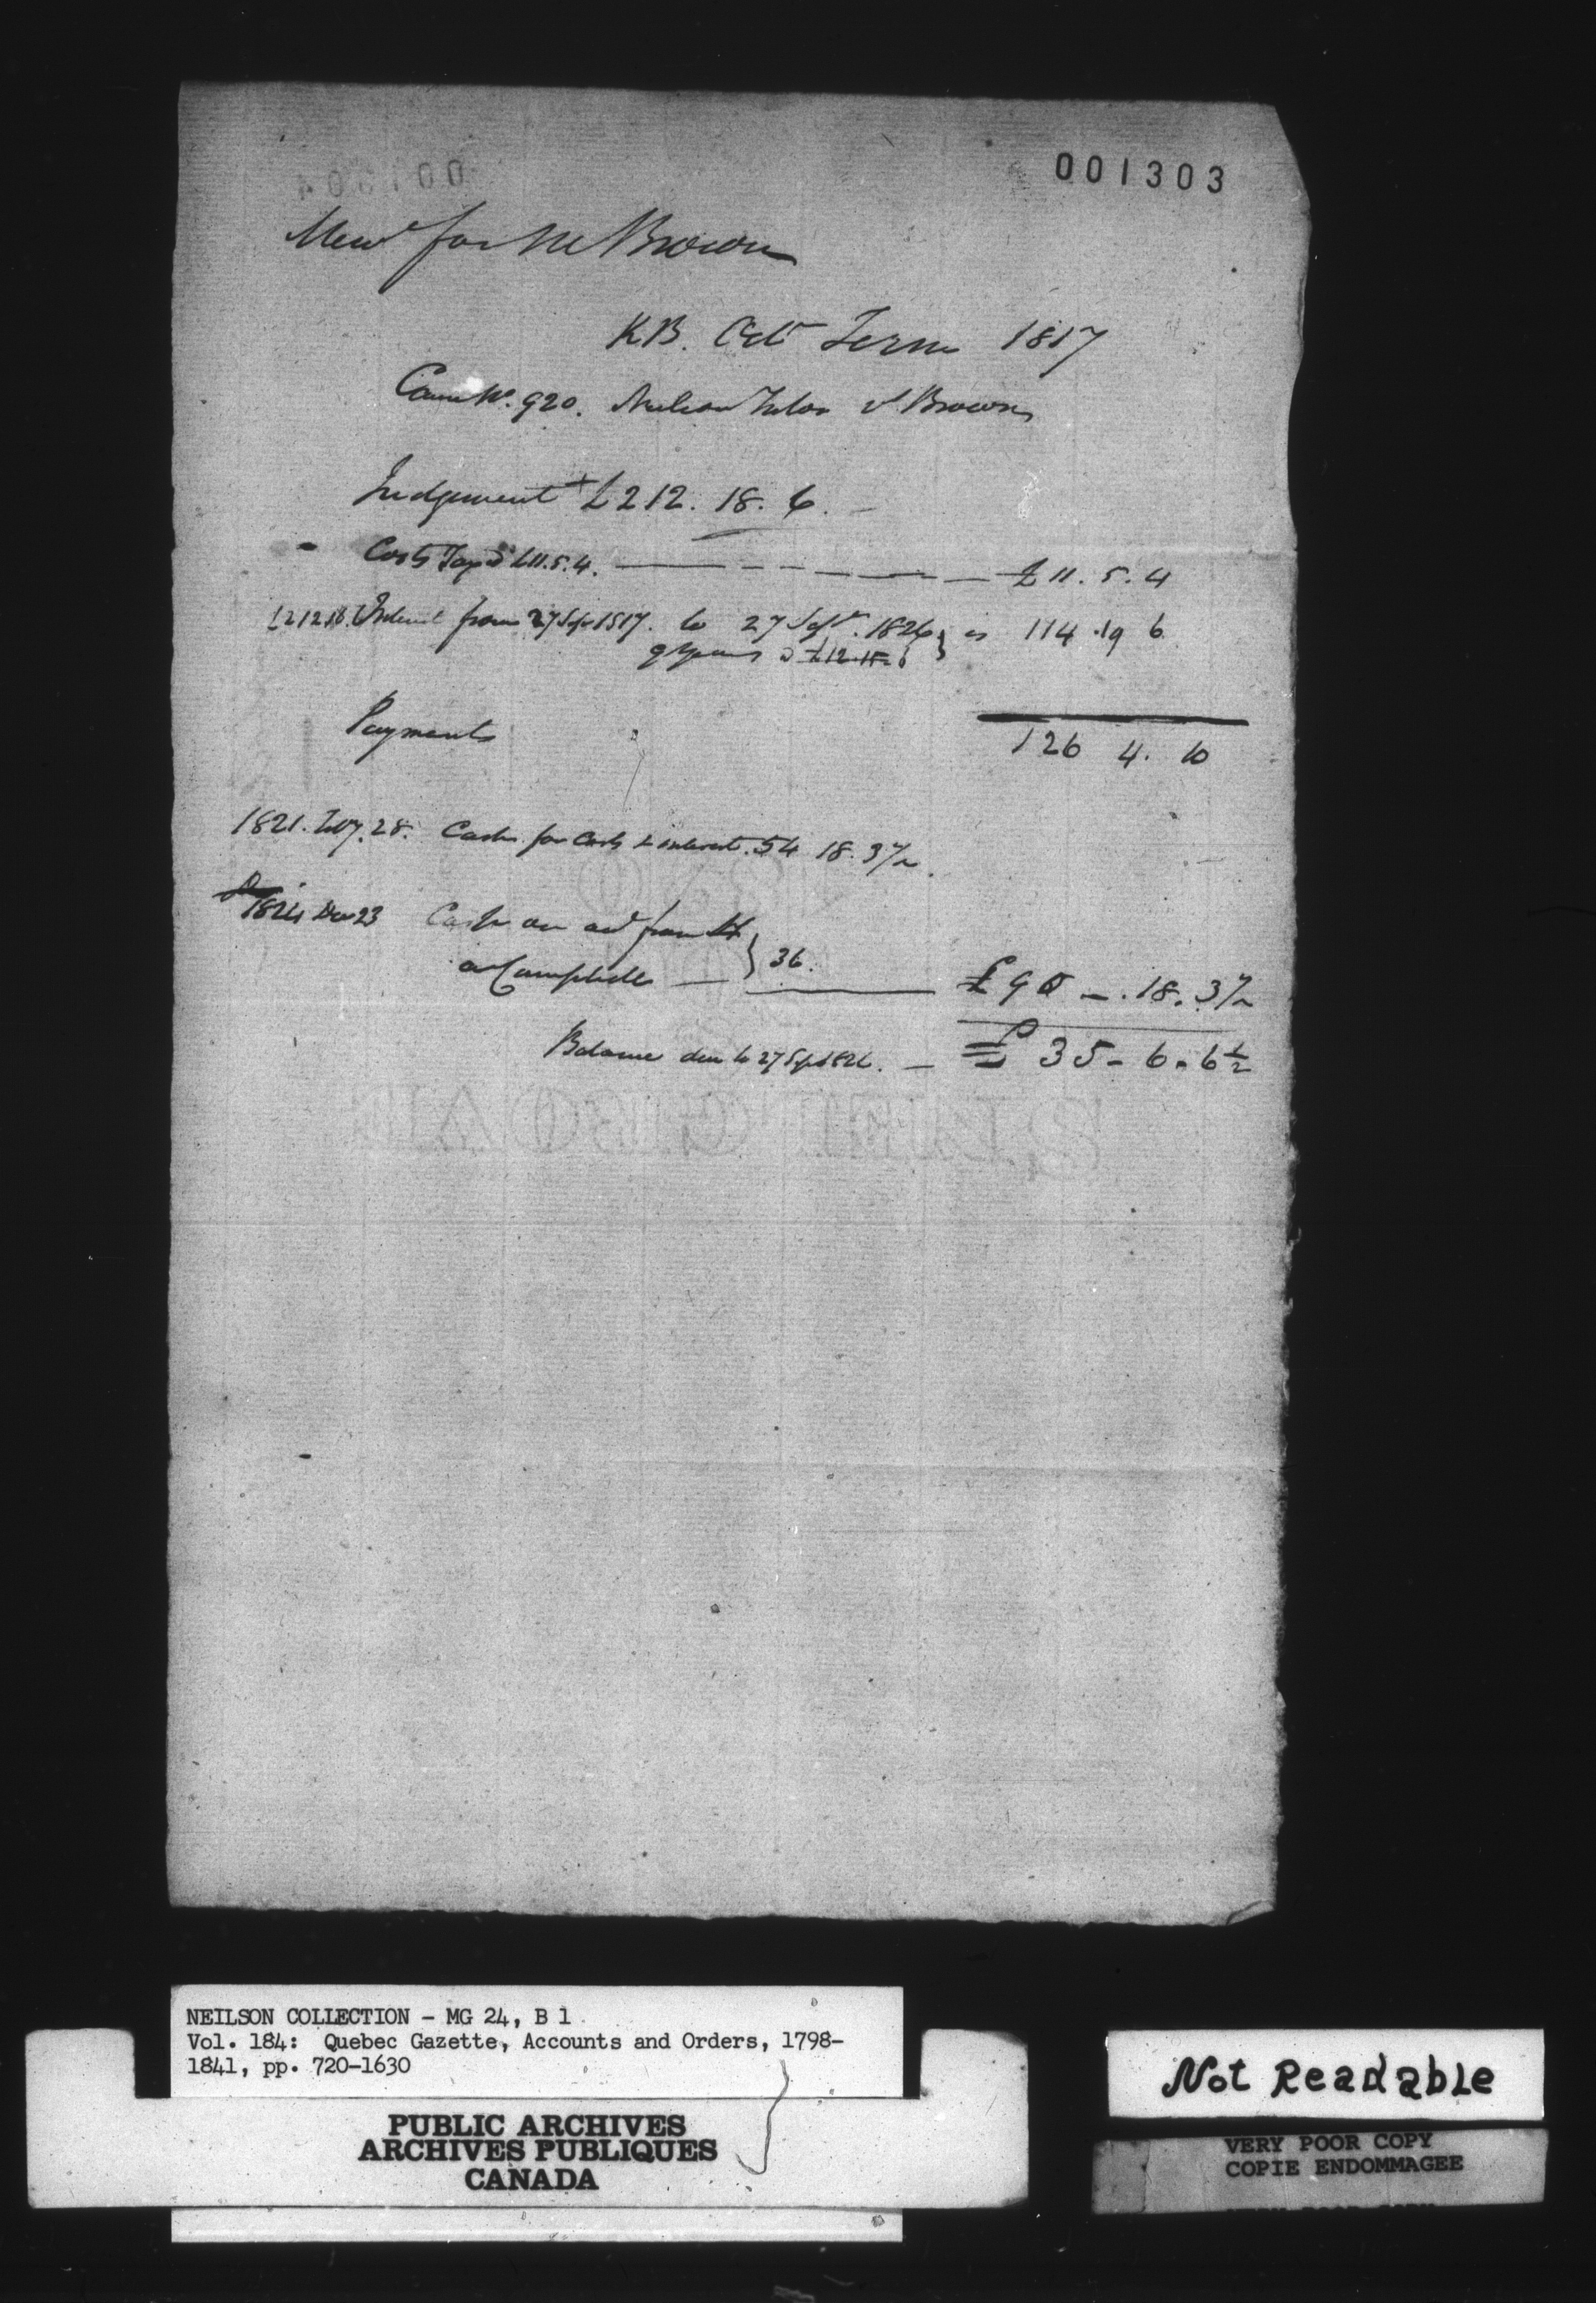 001303
Mem for Mr Brown
K.B. Octr Term 1817
Cause No. 920. Neilson Tutor vs Brown
Judgement £212. 18. 6.
Costs Taxed £11.5.4. £11. 5. 4
Interest from 27 Sep 1817. to 27 Sept. 1826 } is 114 .19 6
9 Years a £12.15.6
126 4. 10
Payments
1821. 28. Cash for Costs & interest. 54 18. 3½.
1824 Dec 23 Cash on act from
a Campbell } 36. £90 - . 18. 3½
Balance due to 27 Sep 1826. £35 - 6. 6½
NEILSON COLLECTION - MG 24, B 1
Vol. 184: Quebec Gazette, Accounts and Orders, 1798-
1841, pp. 720-1630
PUBLIC ARCHIVES
ARCHIVES PUBLIQUES
CANADA
Not Readable
VERY POOR COPY
COPIE ENDOMMAGEE